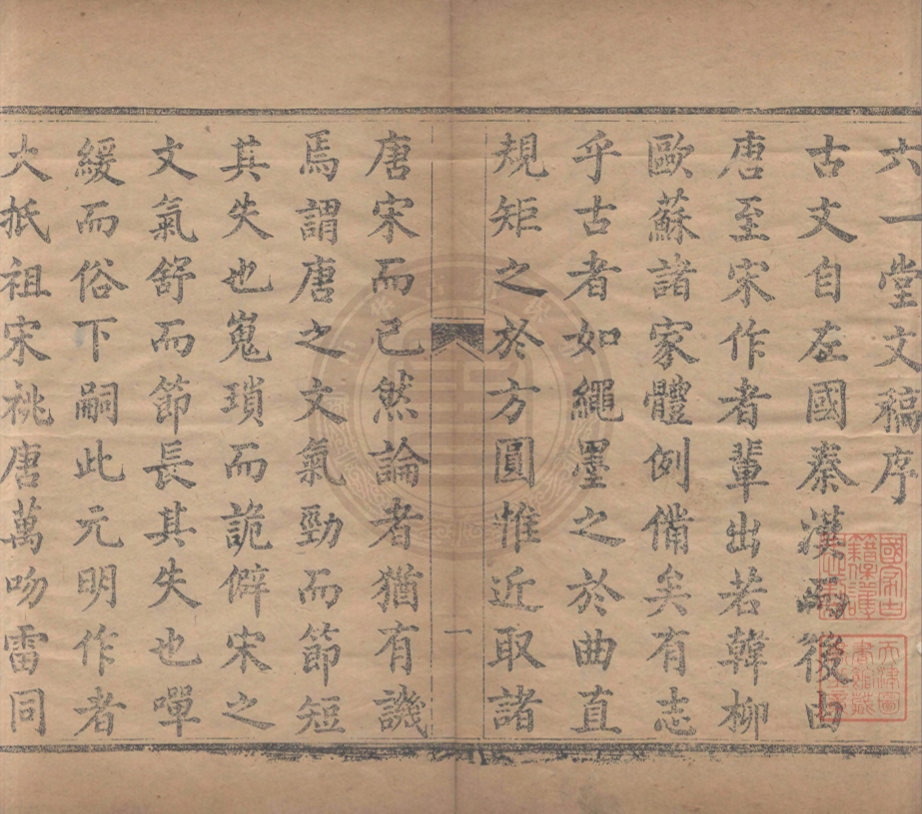 六一堂文稿序
古文自左國秦漢而後由
唐至宋作者輩出若韓柳
歐蘇諸家體例備矣有志
乎古者如繩墨之於曲直
規矩之於方圓惟近取諸
一
唐宋而已然論者猶有譏
焉謂唐之文氣勁而節短
其失也嵬瑣而詭僻宋之
文氣舒而節長其失也嘽
緩而俗下嗣此元明作者
大抵祖宋祧唐萬吻雷同